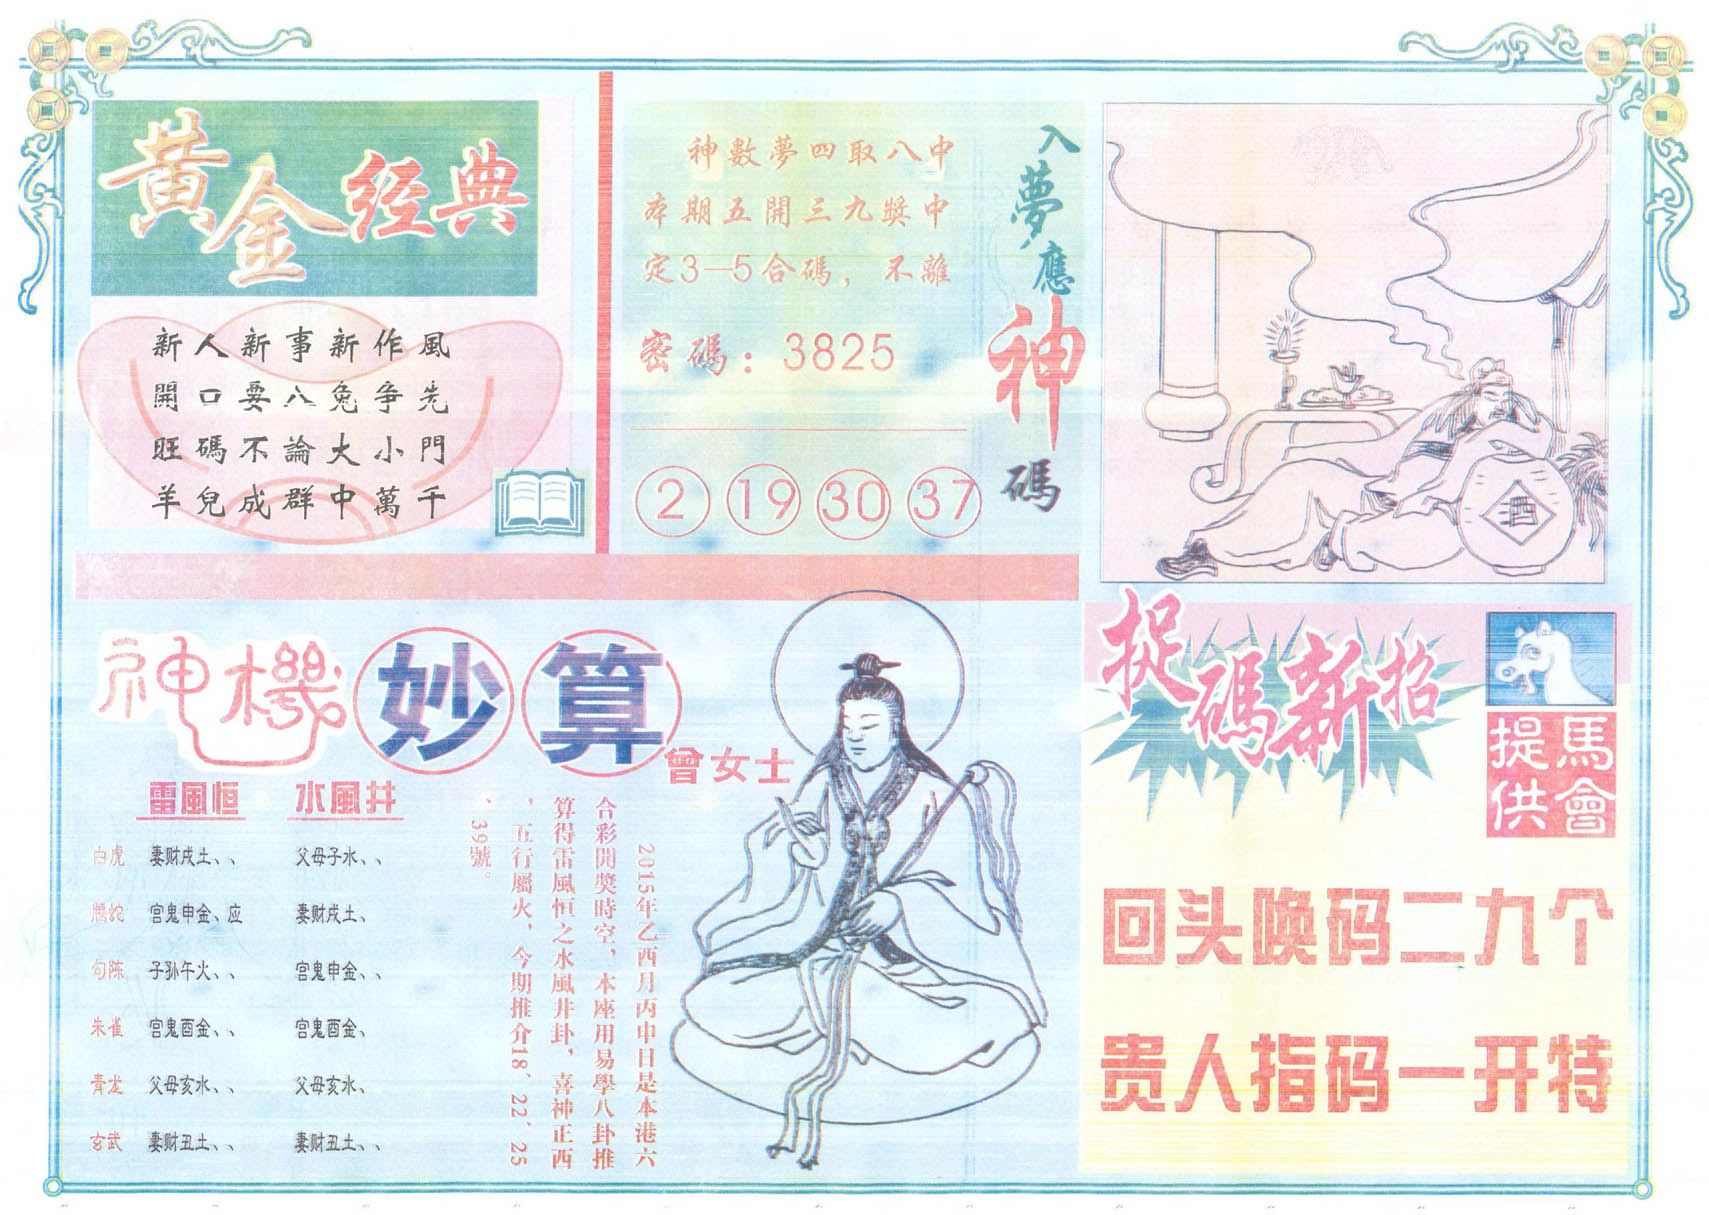 黄金经典
新人新事新作風
開口要八兔爭先
旺碼不論大小門
羊兒成群中萬千
神數夢四取八中
本期五開三九獎中
定3—5合碼，不離
密碼：3825
2 19 30 37
入夢應神碼
神機妙算
曾女士
雷風恒 水風井
白虎 妻财戌土、、 父母子水、、
騰蛇 官鬼申金、应 妻财戌土、
勾陈 子孙午火、、 官鬼申金、、
朱雀 官鬼酉金、、 官鬼酉金、
青龙 父母亥水、、 父母亥水、
玄武 妻财丑土、、 妻财丑土、、
2015年乙酉月丙申日是本港六
合彩開獎時空，本座用易學八卦推
算得雷風恒之水風井卦，喜神正西
，五行屬火，今期推介18、22、25
、39號。
捉碼新招
馬會
提供
回头唤码二九个
贵人指码一开特